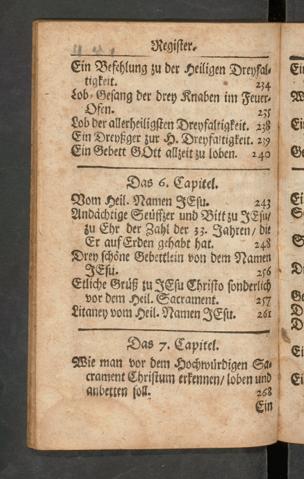 Register.
Ein Befehlung zu der Heiligen Dreyfal-
tigkeit. 234
Lob-Gesang der drey Knaben im Feuer-
Ofen. 235
Lob der allerheiligsten Dreyfaltigkeit. 238
Ein Dreyßger zur H. Dreyfaltigkeit. 239
Ein Gebett GOtt allzeit zu loben. 240
Das 6. Capitel.
Vom Heil. Namen JEsu. 243
Andächtige Seüffzer und Bitt zu JEsu/
zu Ehr der Zahl der 33. Jahren/ die
Er auf Erden gehabt hat. 248
Drey schöne Gebettlein von dem Namen
JEsu. 256
Etliche Grüß zu JEsu Christo sonderlich
vor dem Heil. Sacrament. 257
Litaney vom Heil. Namen JEsu. 261
Das 7. Capitel.
Wie man vor dem Hochwürdigen Sa-
crament Christum erkennen/ loben und
anbetten soll. 268
Ein